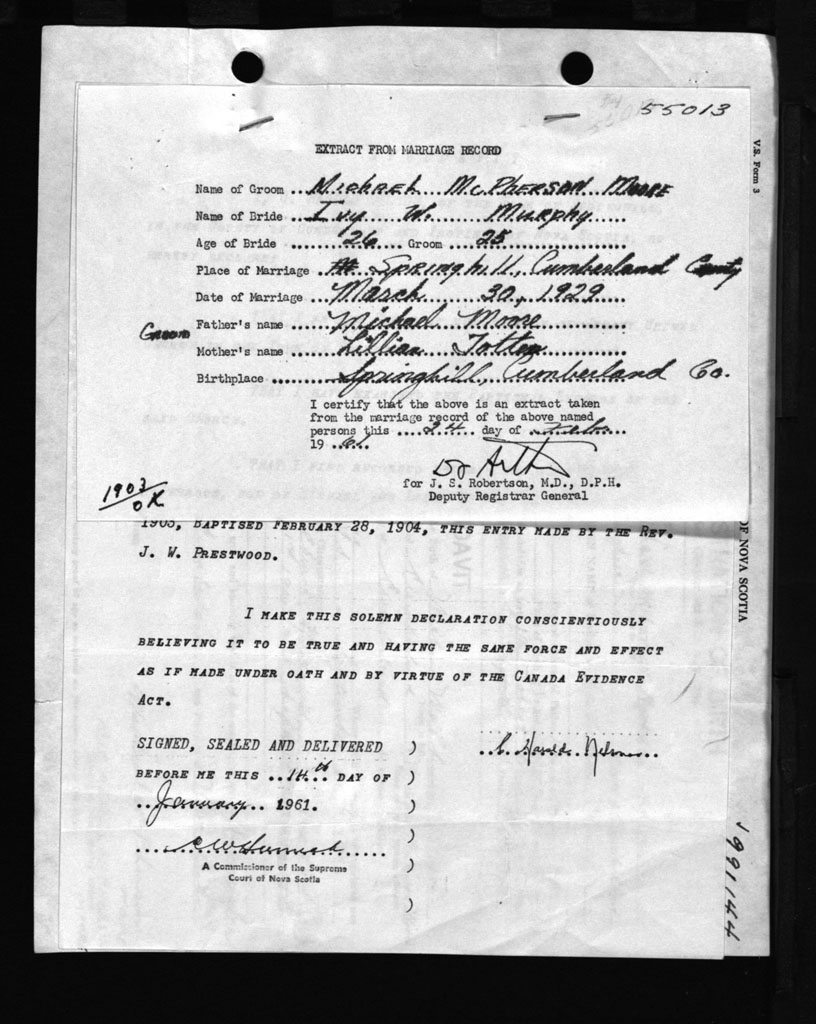 55013
V.S. Form 3
EXTRACT FROM MARRIAGE RECORD
Name of Groom ... Michael McPherson Moore
Name of Bride ... Ivy W. Murphy
Age of Bride ... 26 Groom ... 25
Place of Marriage Springhill, Cumberland County
Date of Marriage ... March 30, 1929
Groom Father's name ... Michael Moore
Mother's name ... Lillian Totten
Birthplace ... Springhill, Cumberland Co.
I certify that the above is an extract taken
from the marriage record of the above named
persons this ... 24 day of Feb.
19 61
for J. S. Robertson, M.D., D.P.H.
Deputy Registrar General
1903/OK
1903, BAPTISED FEBRUARY 28, 1904, THIS ENTRY MADE BY THE REV.
J. W. PRESTWOOD.
OF NOVA SCOTIA
I MAKE THIS SOLEMN DECLARATION CONSCIENTIOUSLY
BELIEVING IT TO BE TRUE AND HAVING THE SAME FORCE AND EFFECT
AS IF MADE UNDER OATH AND BY VIRTUE OF THE CANADA EVIDENCE
ACT.
SIGNED, SEALED AND DELIVERED )
BEFORE ME THIS ..14th DAY OF )
..January.. 1961. )
)
A Commissioner of the Supreme )
Court of Nova Scotia
)
199144